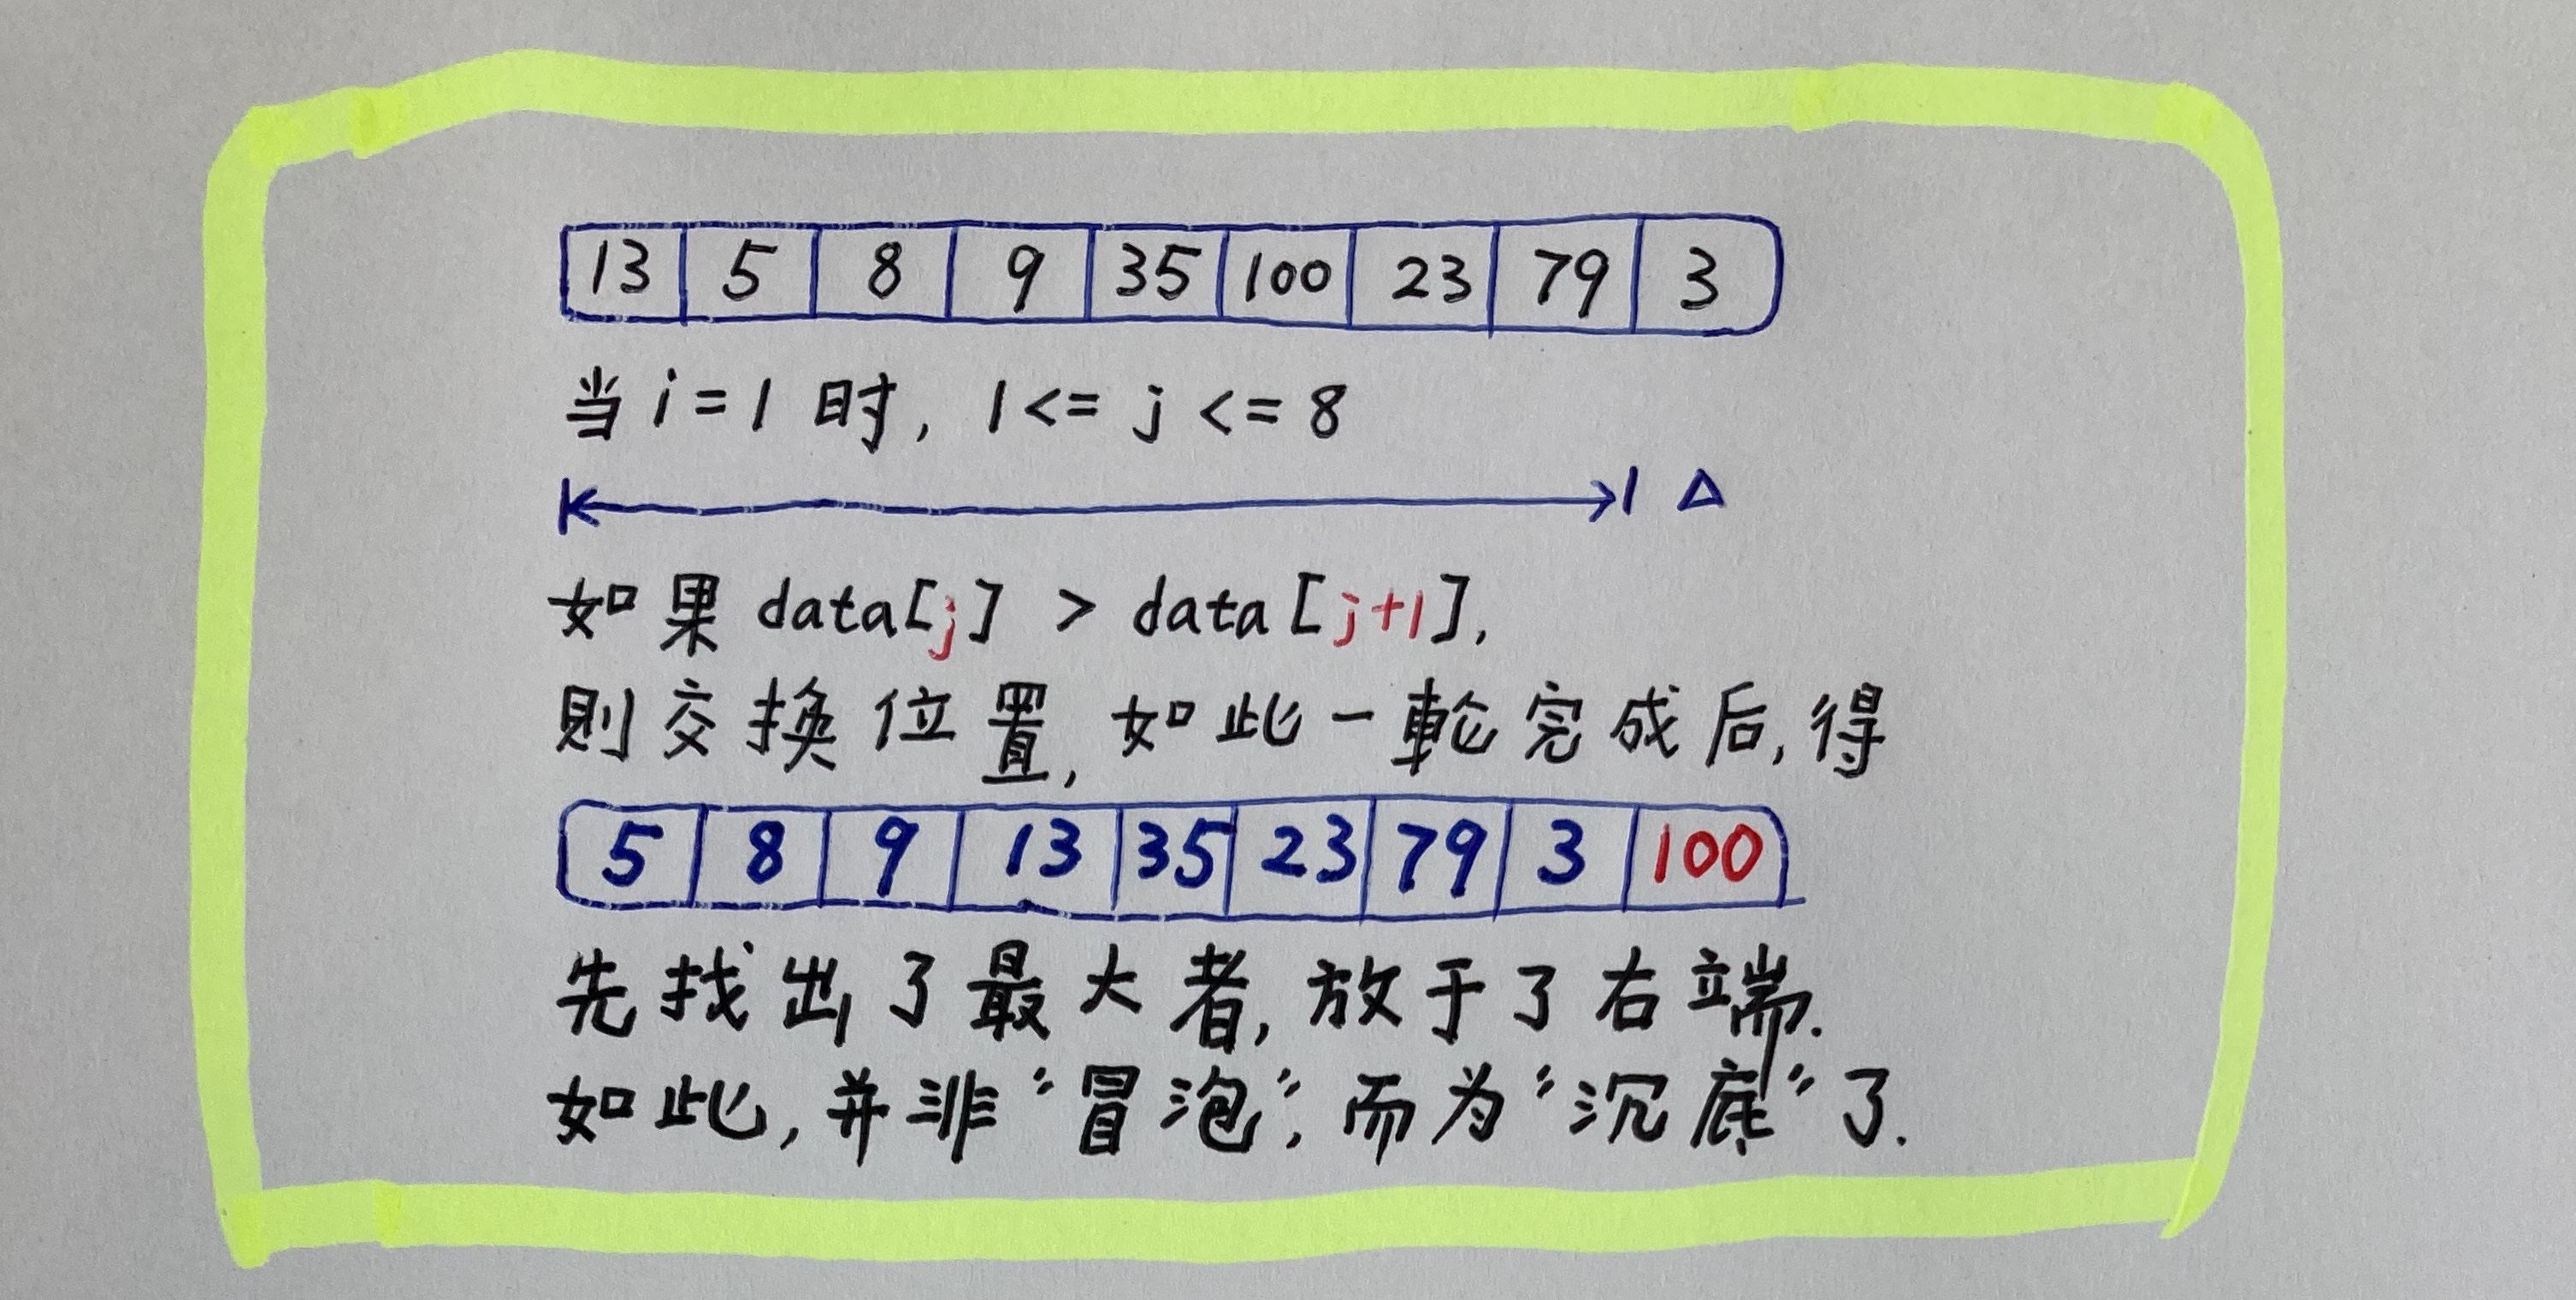 13 5 8 9 35 100 23 79 3
当 i = 1 时, 1 <= j <= 8
Δ
如果 data[j] > data[j+1],
則交换位置, 如此一輪完成后, 得
5 8 9 13 35 23 79 3 100
先找出了最大者, 放于了右端.
如此, 并非“冒泡”, 而为“沉底”了.